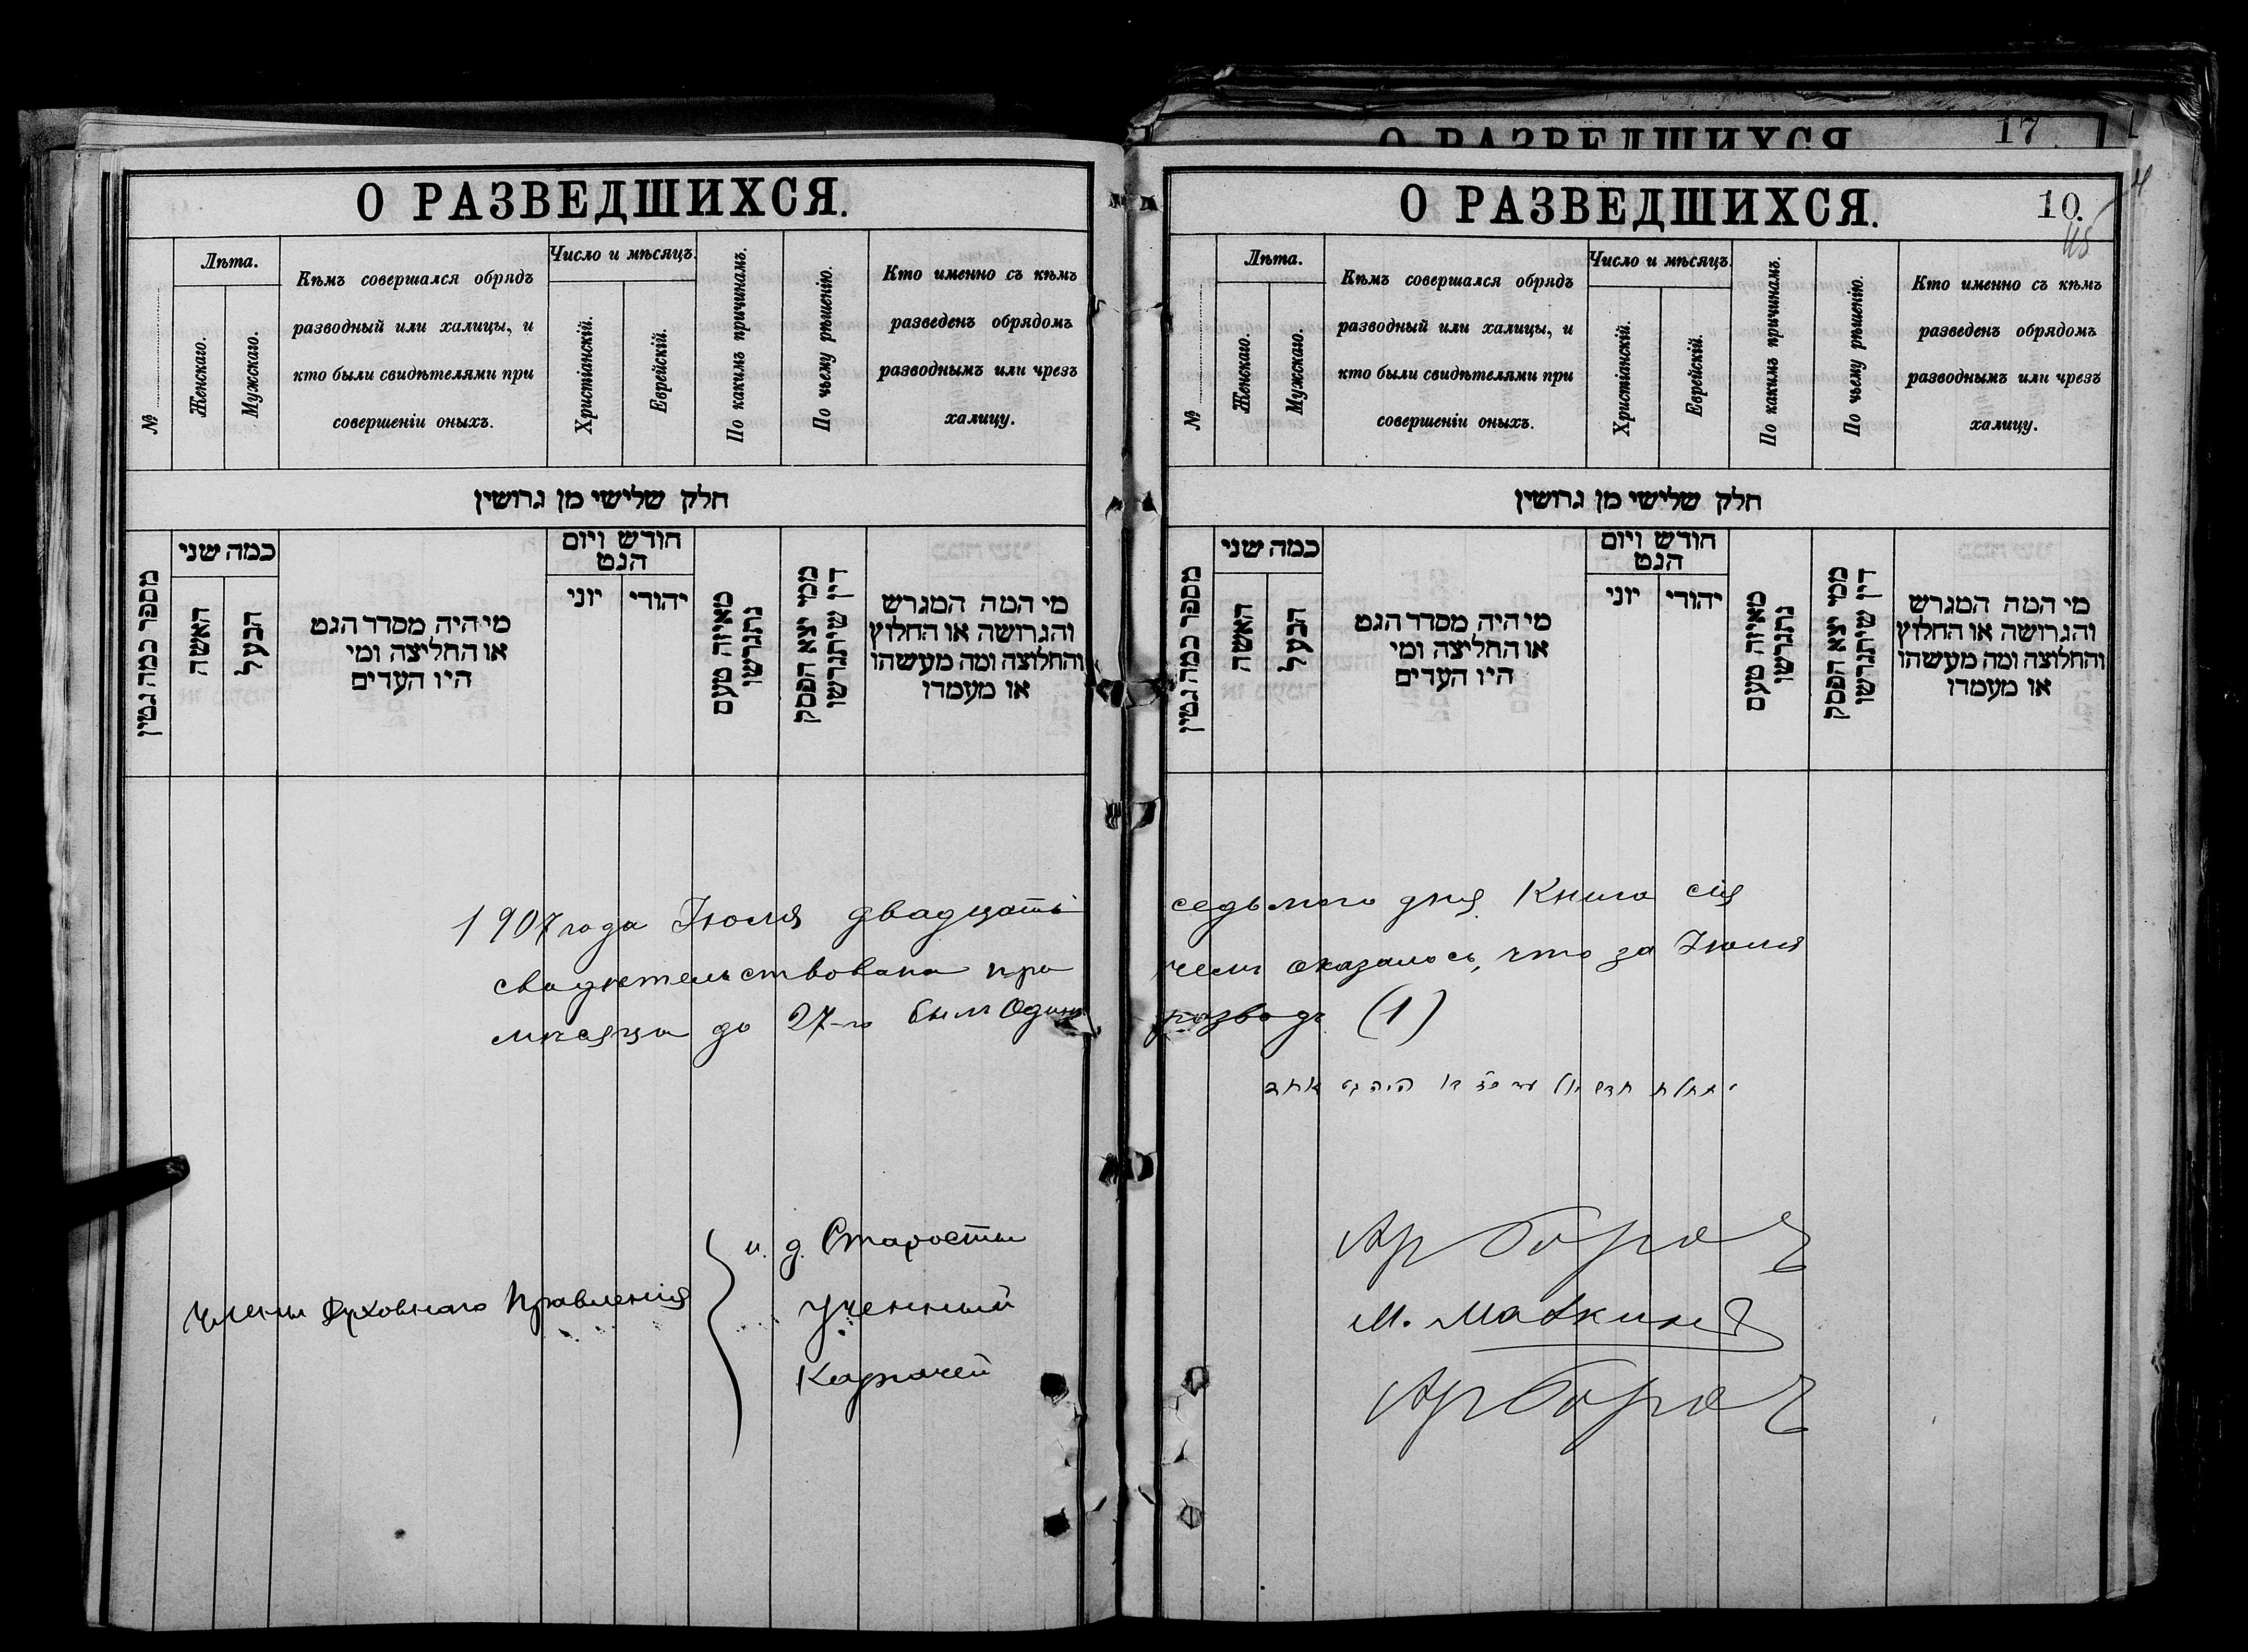 О РАЗВЕДШИХСЯ.
№
Лѣта.
Женскаго.
Мужскаго.
Кѣмъ совершался обрядъ
разводный или халицы, и
кто были свидѣтелями при
совершеніи оныхъ.
Число и мѣсяцъ.
Христіанскій.
Еврейскій.
По какимъ причинамъ.
По чьему рѣшенію.
Кто именно съ кѣмъ
разведенъ обрядомъ
разводнымъ или чрезъ
халицу.
חלק שלישי מן גרושין
מספר כמה גטין
כמה שני
האשה
הבעל
מי היה מסדר הגט
או החליצה ומי
היו העדים
חודש ויום
הגט
יוני
יהודי
מאיזה טעם
נתגרשו
ממי יצא הפסק
דין שיתגרשו
מי המה המגרש
והגרושה או החלוץ
והחלוצה ומה מעשהו
או מעמדו
1907 года Іюля двадцать
свидѣтельствована при
мѣсяца до 27-го былъ Одинъ
Члены Духовнаго Правленія
и. д. Старосты
Ученный
Казначей
О РАЗВЕДШИХСЯ.
17
О РАЗВЕДШИХСЯ.
10.
№
Лѣта.
Женскаго.
Мужскаго.
Кѣмъ совершался обрядъ
разводный или халицы, и
кто были свидѣтелями при
совершеніи оныхъ.
Число и мѣсяцъ.
Христіанскій.
Еврейскій.
По какимъ причинамъ.
По чьему рѣшенію.
Кто именно съ кѣмъ
разведенъ обрядомъ
разводнымъ или чрезъ
халицу.
חלק שלישי מן גרושין
מספר כמה גטין
כמה שני
האשה
הבעל
מי היה מסדר הגט
או החליצה ומי
היו העדים
חודש ויום
הגט
יוני
יהודי
מאיזה טעם
נתגרשו
ממי יצא הפסק
דין שיתגרשו
מי המה המגרש
והגרושה או החלוץ
והחלוצה ומה מעשהו
או מעמדו
седьмого дня Книга сія
чемъ оказалось, что за Іюля
разводъ (1)
היה גט אחד
М.